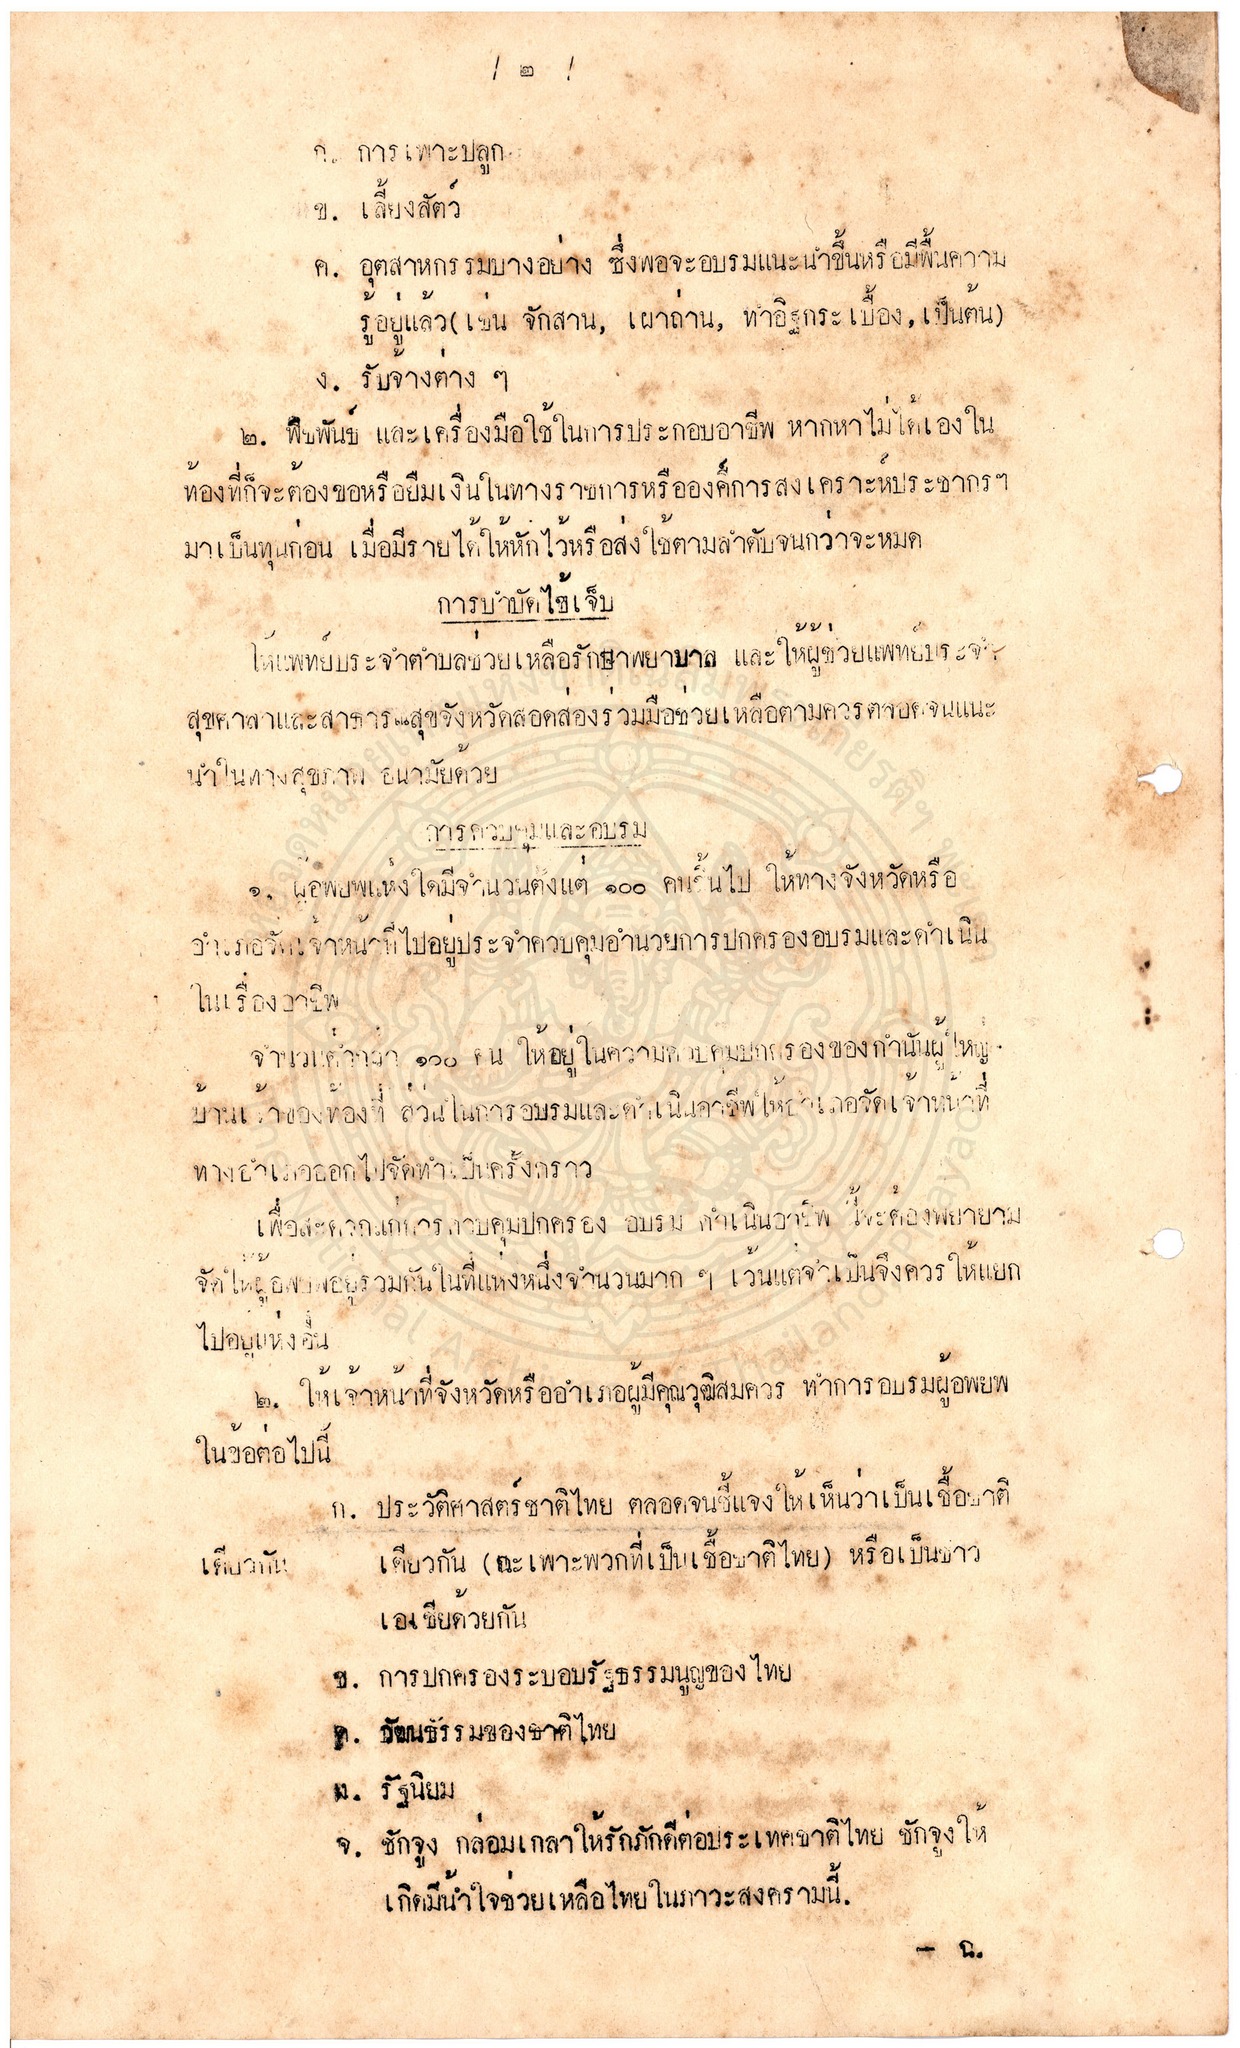 / ๒ /
ก. การเพาะปลูก
ข. เลี้ยงสัตว์
ค. อุตสาหกรรมบางอย่าง ซึ่งพอจะอบรมแนะนำขึ้นหรือมีพื้นความ
รู้อยู่แล้ว(เช่น จักสาน, เผาถ่าน, ทำอิฐกระเบื้อง,เป็นต้น)
ง. รับจ้างต่าง ๆ
๒. พืชพันธ์ และเครื่องมือใช้ในการประกอบอาชีพ หากหาไม่ได้เองใน
ท้องที่ก็จะต้องขอหรือยืมเงินในทางราชการหรือองค์การสงเคราะห์ประชากรฯ
มาเป็นทุนก่อน เมื่อมีรายได้ให้หักไว้หรือส่งใช้ตามลำดับจนกว่าจะหมด
การบำบัดไข้เจ็บ
ให้แพทย์ประจำตำบลช่วยเหลือรักษาพยาบาล และให้ผู้ช่วยแพทย์ประจำ
สุขศาลาและสาธารณสุขจังหวัดสอดส่องร่วมมือช่วยเหลือตามควรตลอดจนแนะ
นำในทางสุขภาพ อนามัยด้วย
การควบคุมและอบรม
๑. ผู้อพยพแห่งใดมีจำนวนตั้งแต่ ๑๐๐ คนขึ้นไป ให้ทางจังหวัดหรือ
อำเภอจัดเจ้าหน้าที่ไปอยู่ประจำควบคุมอำนวยการปกครองอบรมและดำเนิน
ในเรื่องอาชีพ
จำนวนต่ำกว่า ๑๐๐ คน ให้อยู่ในความควบคุมปกครองของกำนันผู้ใหญ่
บ้านเจ้าของท้องที่ ส่วนในการอบรมและดำเนินอาชีพให้อำเภอจัดเจ้าหน้าที่
ทางอำเภอออกไปจัดทำเป็นครั้งคราว
เพื่อสะดวกแก่การควบคุมปกครอง อบรม ดำเนินอาชีพ นี้จะต้องพยายาม
จัดให้ผู้อพยพอยู่รวมกันในที่แห่งหนึ่งจำนวนมาก ๆ เว้นแต่จำเป็นจึงควรให้แยก
ไปอยู่แห่งอื่น
๒. ให้เจ้าหน้าที่จังหวัดหรืออำเภอผู้มีคุณวุฒิสมควร ทำการอบรมผู้อพยพ
ในข้อต่อไปนี้
ก. ประวัติศาสตร์ชาติไทย ตลอดจนชี้แจงให้เห็นว่าเป็นเชื้อชาติ
เดียวกัน เดียวกัน (ฉะเพาะพวกที่เป็นเชื้อชาติไทย) หรือเป็นชาว
เอเซียด้วยกัน
ข. การปกครองระบอบรัฐธรรมนูญของไทย
ค. วัฒนธรรมของชาติไทย
ง. รัฐนิยม
จ. ชักจูง กล่อมเกลาให้รักภักดีต่อประเทศชาติไทย ชักจูงให้
เกิดมีน้ำใจช่วยเหลือไทยในภาวะสงครามนี้.
– ฉ.